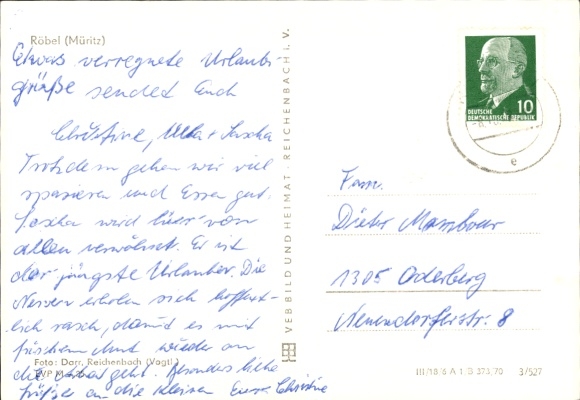 Röbel (Müritz)
Etwas verregnete Urlaubs-
grüße sendet Euch
Christine, Ulla + Sascha
Trotzdem gehen wir viel
spazieren und Essen gut.
Sascha wird hier von
allen verwöhnt. Er ist
der jüngste Urlauber. Die
Nerven erholen sich hoffent-
lich rasch, damit es mit
frischem Mut wieder an
die geht. Besonders liebe
Grüße an die Kleinen Eure Christine
Foto: Darr, Reichenbach (Vogtl.)
EVP M
VEB BILD UND HEIMAT · REICHENBACH I. V.
10
DEUTSCHE
DEMOKRATISCHE REPUBLIK
e
Fam.
Dieter
1305 Oderberg
Neuendorferstr. 8
III/18/6 A 1 B 373/70 3/527